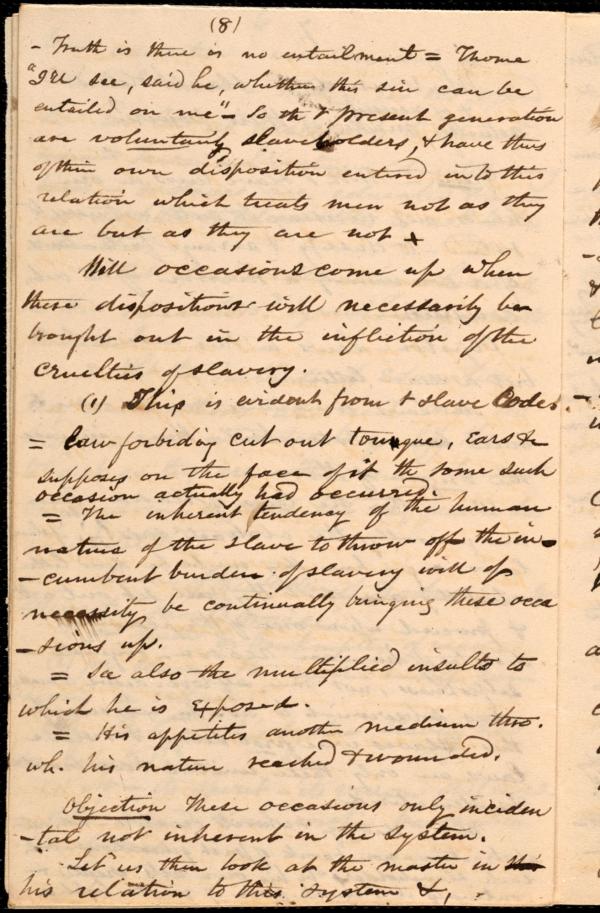 (8)
- Truth is there is no entailment = Thome
"I'll see, said he, whether this sin can be
entailed on me" - So th t present generation
are voluntary slaveholders, & have thus
of their own disposition entered into this
relation which treats men not as they
are but as they are not +
Will occasions come up when
these dispositions will necessarily be
brought out in the infliction of the
cruelties of slavery.
(1) This is evident from t slave Codes.
= Law forbiding cut out tongue, ears &c
supposes on the face of it th some such
occasion actually had occurred.
= The inherent tendency of the human
nature of the slave to throw off the in-
-cumbent burden of slavery will of
necessity be continually bringing these occa
-sions up.
= So also the multiplied insults to
which he is exposed.
= His appetites another medium thro.
wh. his nature reached & wounded.
Objection These occasions only inciden
-tal not inherent in the system.
Let us then look at the master in
his relation to this system &,